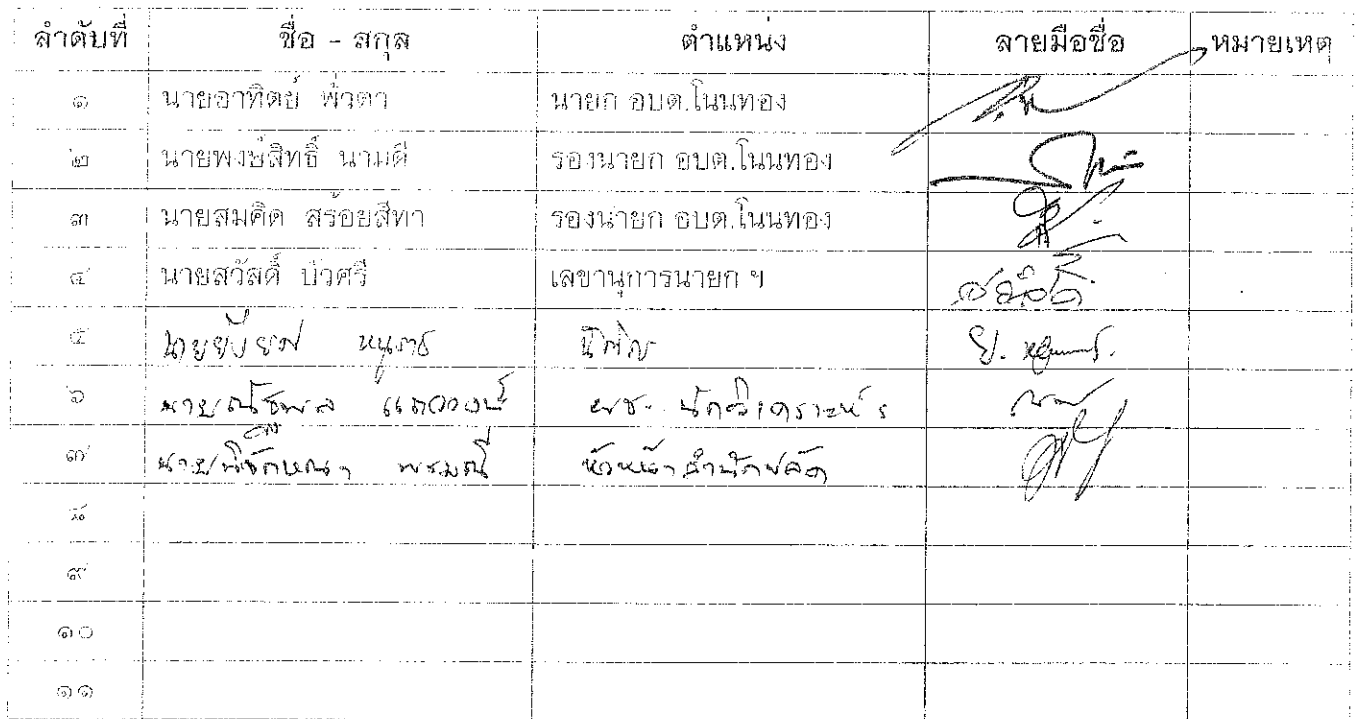 ลำดับที่ ชื่อ - สกุล ตำแหน่ง ลายมือชื่อ หมายเหตุ
๑ นายอาทิตย์ พ่วตา นายก อบต.โนนทอง
๒ นายพงษ์สิทธิ์ นามดี รองนายก อบต.โนนทอง
๓ นายสมคิด สร้อยสีทา รองนายก อบต.โนนทอง
๔ นายสวัสดิ์ บัวศรี เลขานุการนายก ฯ สวัสดิ์
๕ นาย
๖ นาย ผช. นักวิเคราะห์ ฯ
๗ นาย หัวหน้าสำนักปลัด
๘
๙
๑๐
๑๑